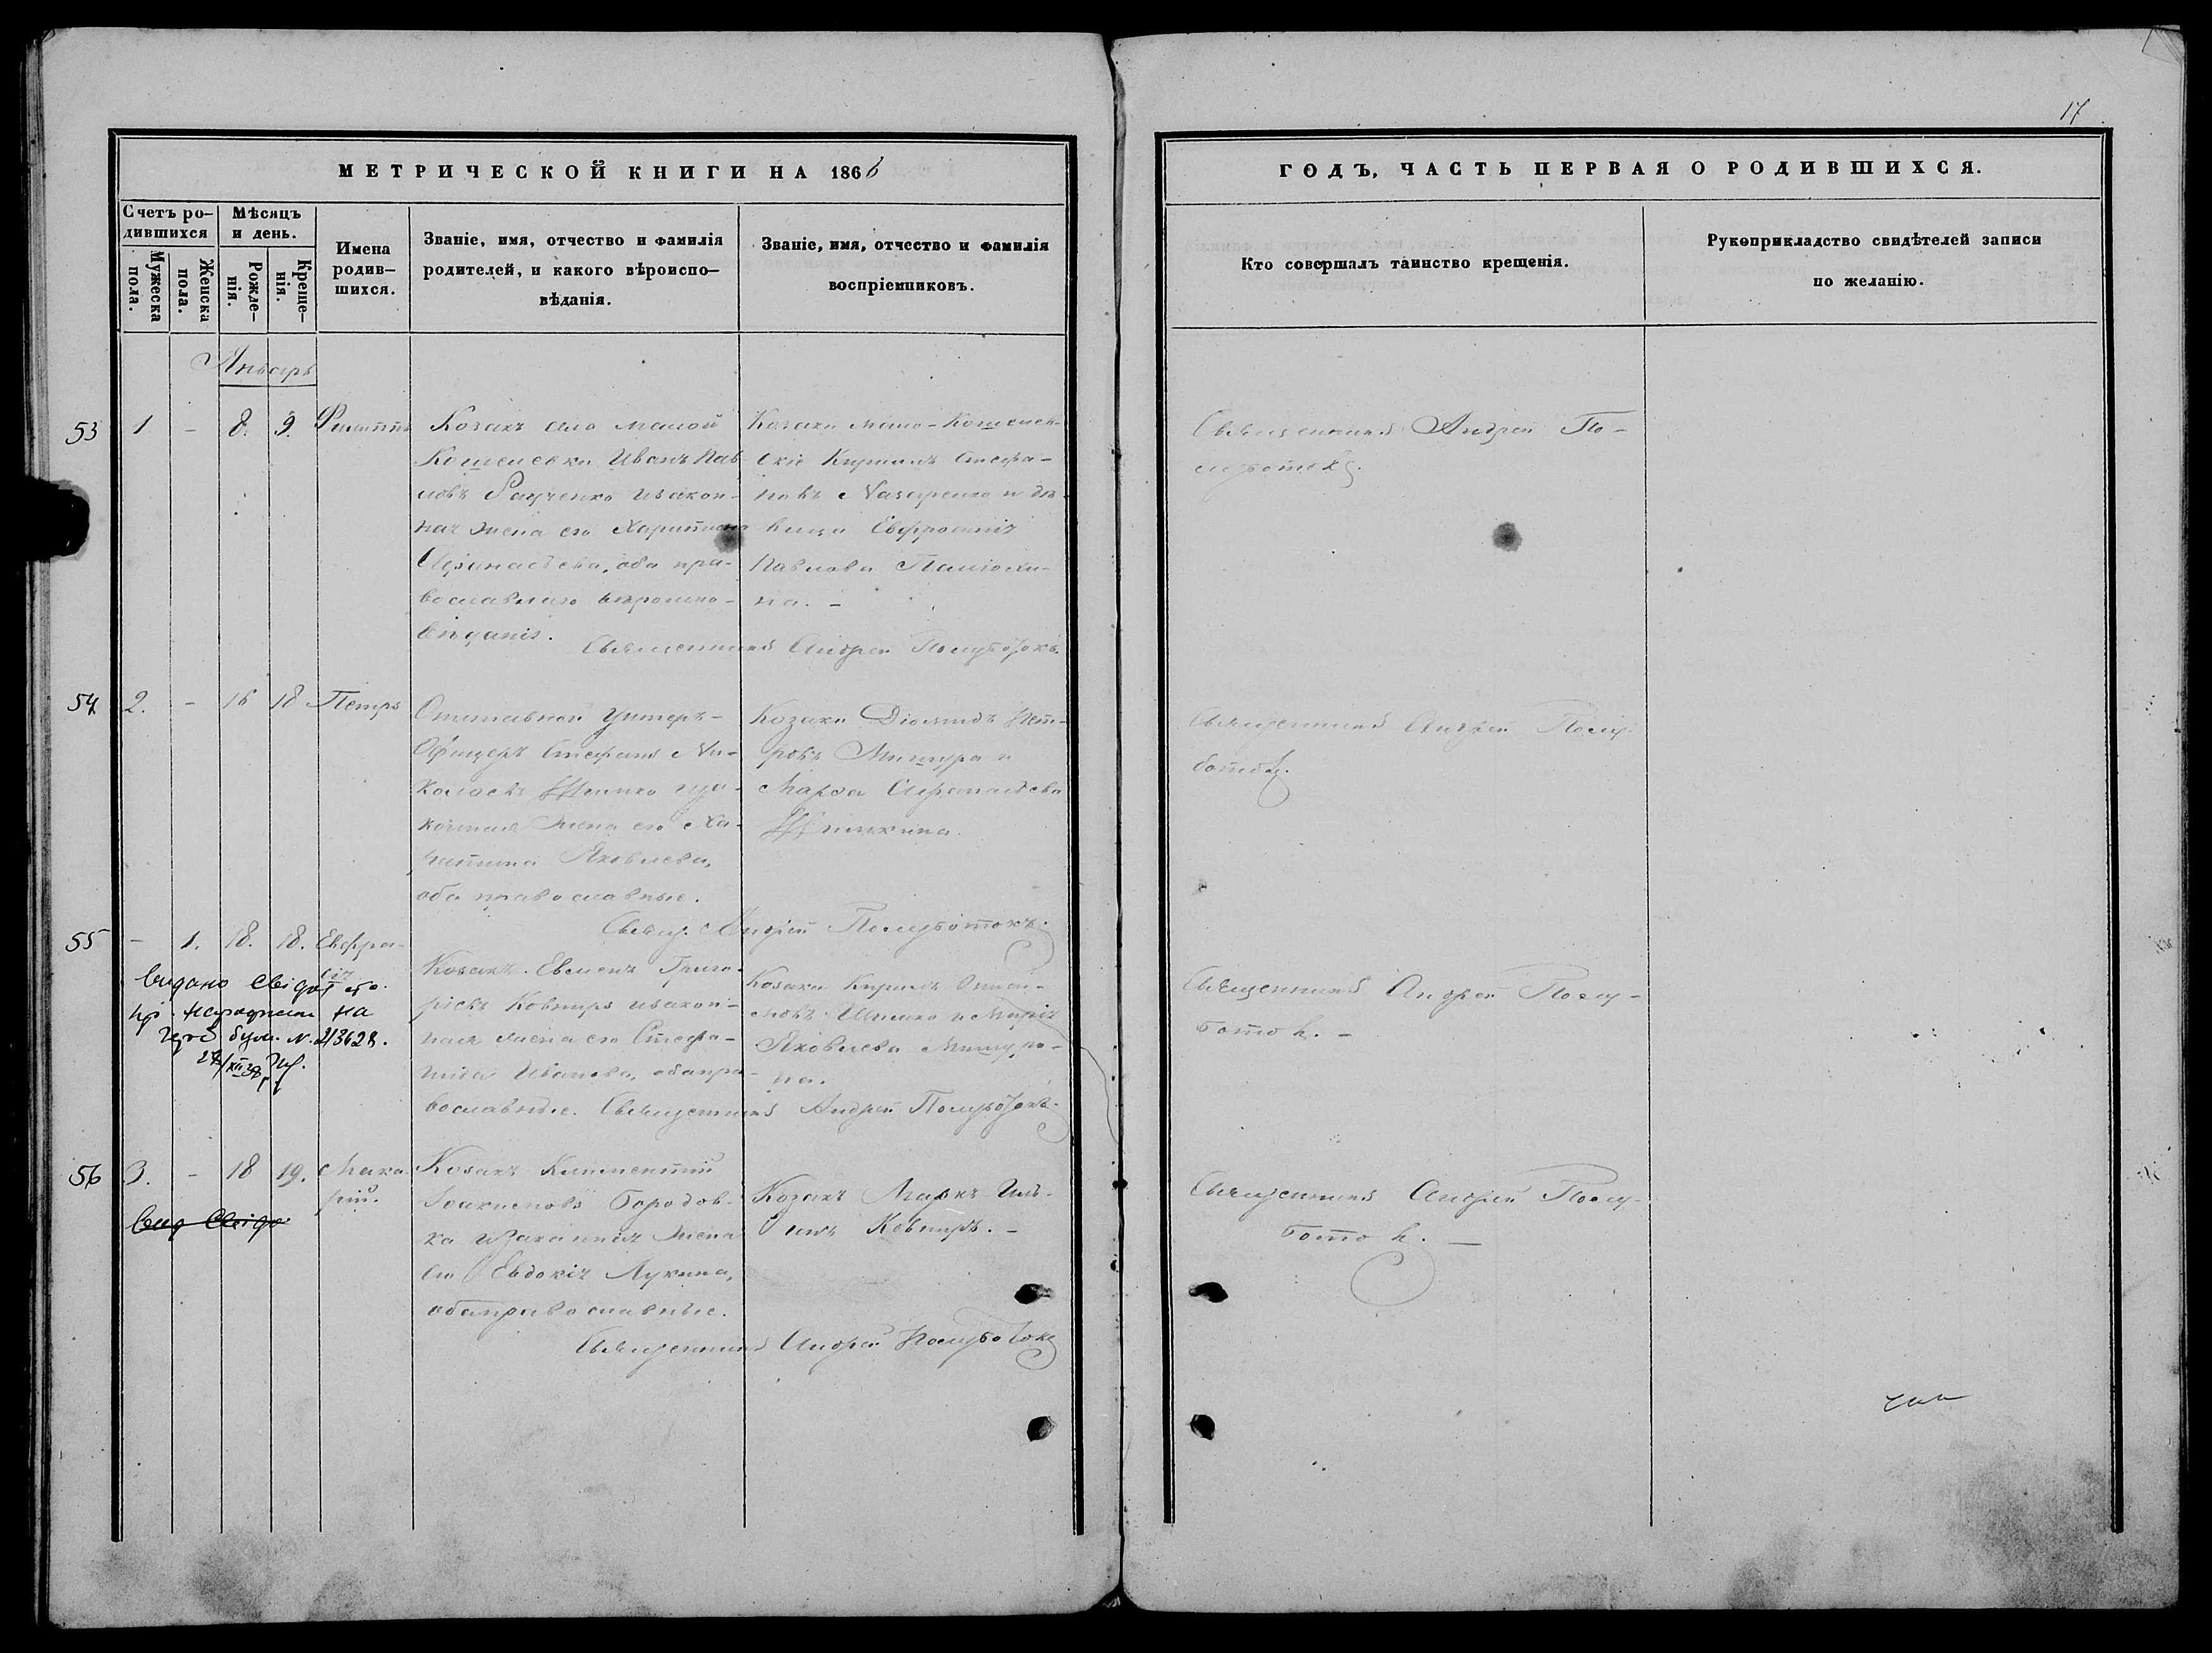 17
МЕТРИЧЕСКОЙ КНИГИ НА 1866
ГОДЪ, ЧАСТЬ ПЕРВАЯ О РОДИВШИХСЯ.
Счетъ ро-
дившихся
Мужеска
пола.
Женска
пола.
Мѣсяцъ
и день.
Рожде-
нія.
Креще-
нія.
Имена
родив-
шихся.
Званіе, имя, отчество и фамилія
родителей, и какого вѣроиспо-
вѣданія.
Званіе, имя, отчество и фамилія
воспріемниковъ.
Кто совершалъ таинство крещенія.
Рукоприкладство свидѣтелей записи
по желанію.
Январь
53 1 - 8. 9. Филиппъ
Козакъ села Малой
Кошелевки Иванъ Пав
ловъ Радченко и закон-
ная жена его Харитина
Афанасьева, оба пра-
вославнаго вѣроиспо-
вѣданія.
Козаки Мало-Кошелев-
скіе Кирилъ Стефа-
новъ Назаренко и дѣ-
вица Евфросинія
Павлова
на. -
Священникъ Андрей Полуботокъ.
Священникъ Андрей По-
луботокъ.
54 2. - 16 18 Петръ
Отставной Унтеръ-
Офицеръ Стефанъ Ни-
колаевъ и за-
конная жена его Ха-
ритина Яковлева,
оба православные.
Козаки Діомидъ Пет-
ровъ Мишура и
Марфа Афанасьева
Священ. Андрей Полуботокъ.
Священникъ Андрей Полу-
ботокъ.
55 - 1. 18. 18. Евфра-
сія
Козакъ Евменъ Григо-
ріевъ Ковтиръ и закон-
ная жена его Стефа-
нида Иванова, оба пра-
вославные. Священникъ Андрей Полуботокъ.
Козаки Кирилъ
мовъ Шинко и Марія
Яковлева Мишури-
на.
Священникъ Андрей Полу-
ботокъ. -
видано свідот
на
бум. N. 213628.
27/XII 38
56 3. - 18 19. Мака-
рій.
Козакъ Климентій
Іоакимовъ Бородав-
ка и законная жена
его Евдокія Лукина,
оба православные.
Козакъ Маркъ Иль-
инъ Ковтиръ. -
Священникъ Андрей Полуботокъ
Священникъ Андрей Полу-
ботокъ. -
Вид свідо